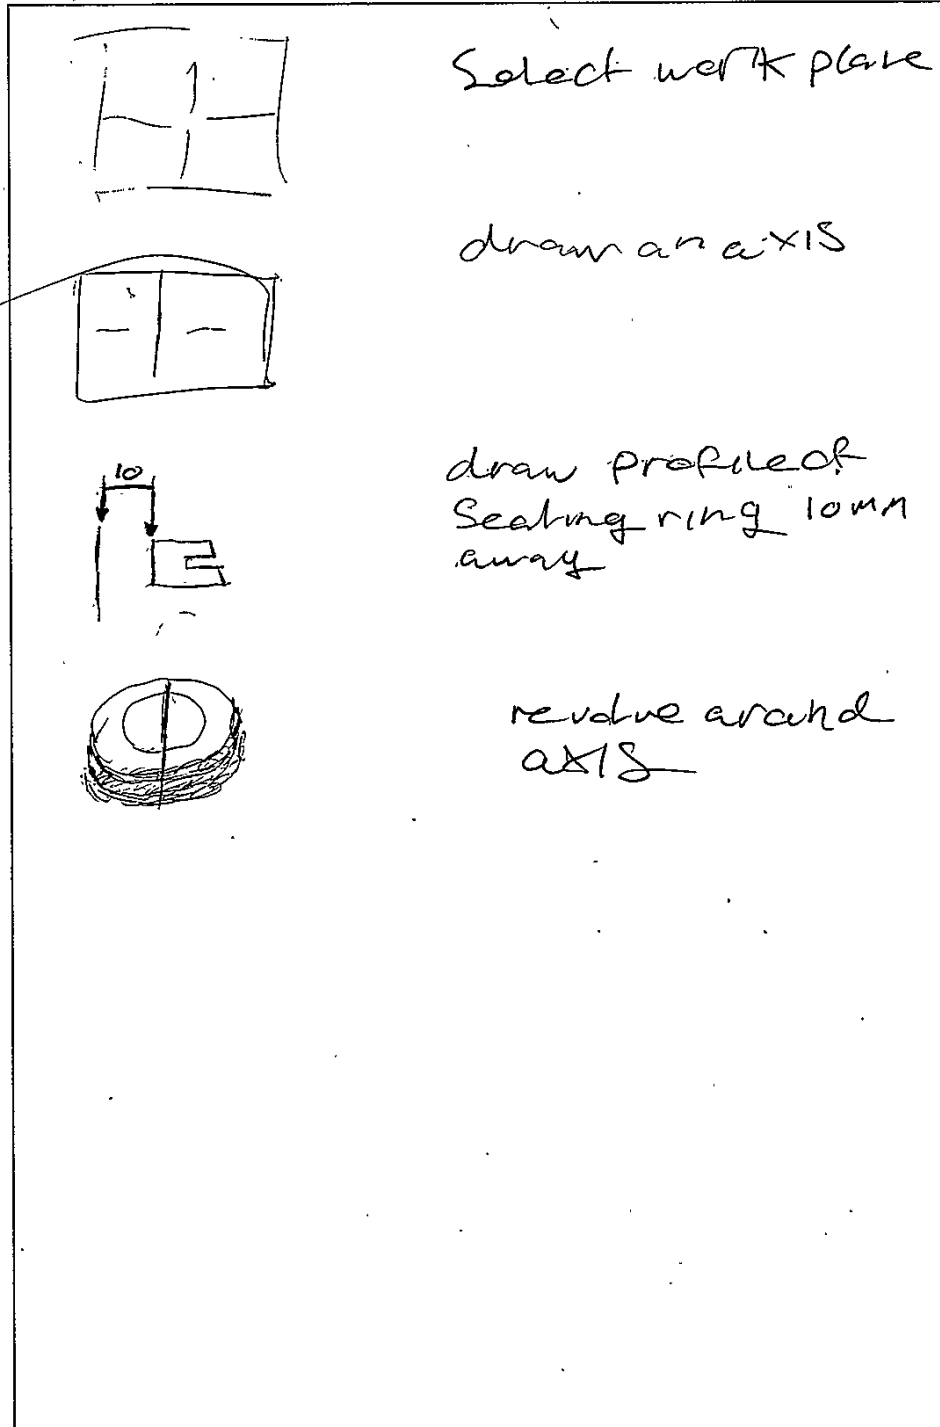 Select work plane
draw an axis
10
draw profile of
Sealing ring 10mm
away
revolve around
axis